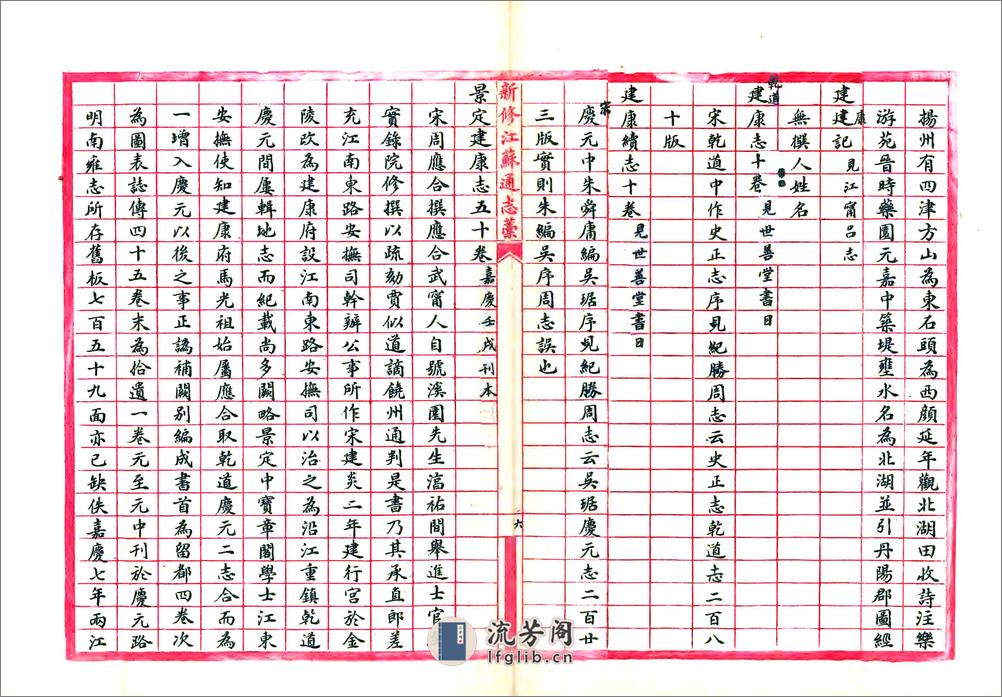 揚州有四津方山為東石頭為西顏延年觀北湖田收詩注樂
游苑晉時藥園元嘉中築堤壅水名為北湖並引丹陽郡圖經
建康建記見江甯呂志
無撰人姓名
乾道建康志十卷見世善堂書目
宋乾道中作史正志序見紀勝周志云史正志乾道志二百八
十版
建康續志十卷見世善堂書目
宋慶元中朱舜庸編吳琚序見紀勝周志云吳琚慶元志二百廿
三版實則朱編吳序周志誤也
新修江蘇通志藳
六
景定建康志五十卷嘉慶壬戌刊本
宋周應合撰應合武甯人自號溪園先生淳祐間舉進士官
實錄院修撰以疏劾賈似道謫饒州通判是書乃其承直郎差
充江南東路安撫司幹辦公事所作宋建炎二年建行宮於金
陵改為建康府設江南東路安撫司以治之為沿江重鎮乾道
慶元間屢輯地志而紀載尚多闕略景定中寶章閣學士江東
安撫使知建康府馬光祖始屬應合取乾道慶元二志合而為
一增入慶元以後之事正譌補闕別編成書首為留都四卷次
為圖表誌傳四十五卷末為拾遺一卷元至元中刊於慶元路
明南雍志所存舊板七百五十九面亦已缺佚嘉慶七年兩江
流芳阁
lfglib.cn